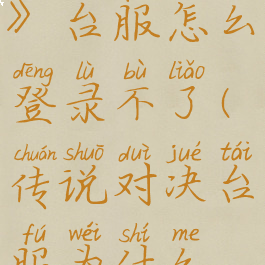 》台服怎么
dēng lù bù liǎo
登录不了(
chuán shuō duì jué tái
传说对决台
fú wéi shí me
服为什么